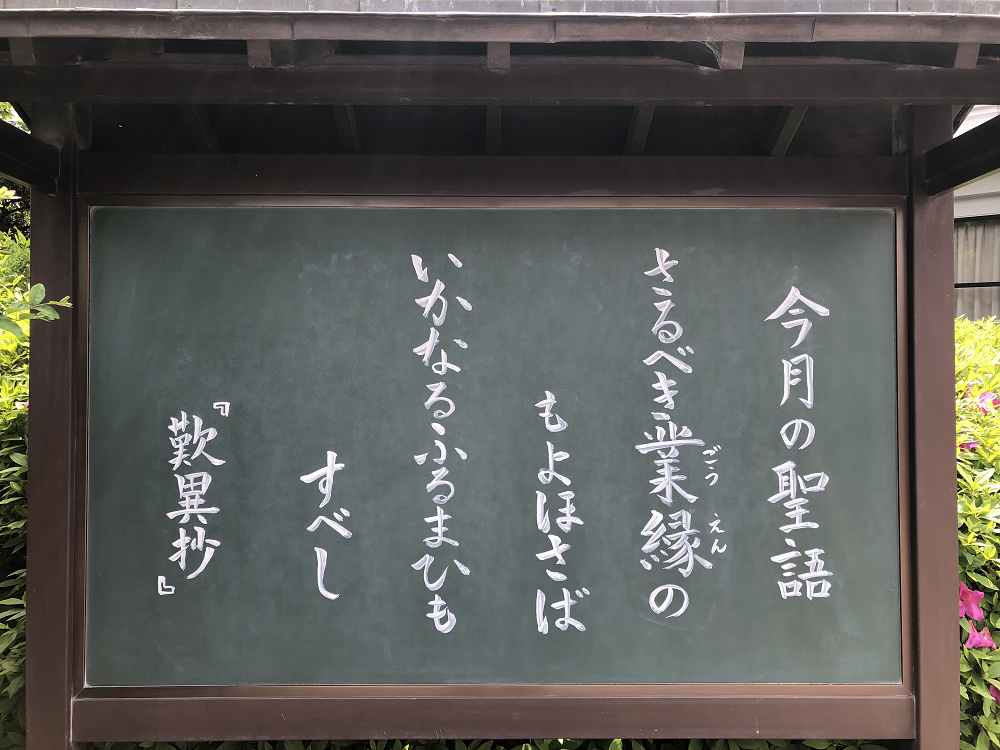 今月の聖語
さるべき業縁の
ごう
えん
もよほさば
いかなるふるまひも
すべし
『歎異抄』